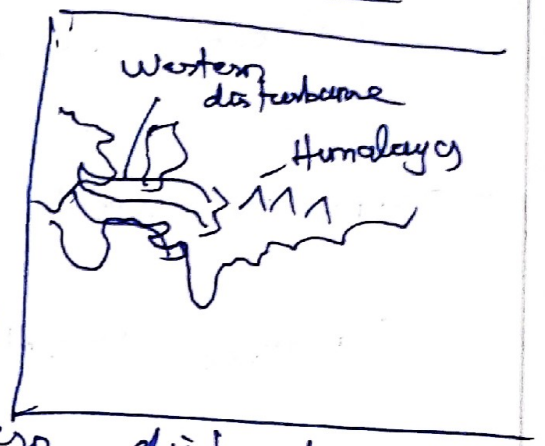 Western
disturbance
Himalayas